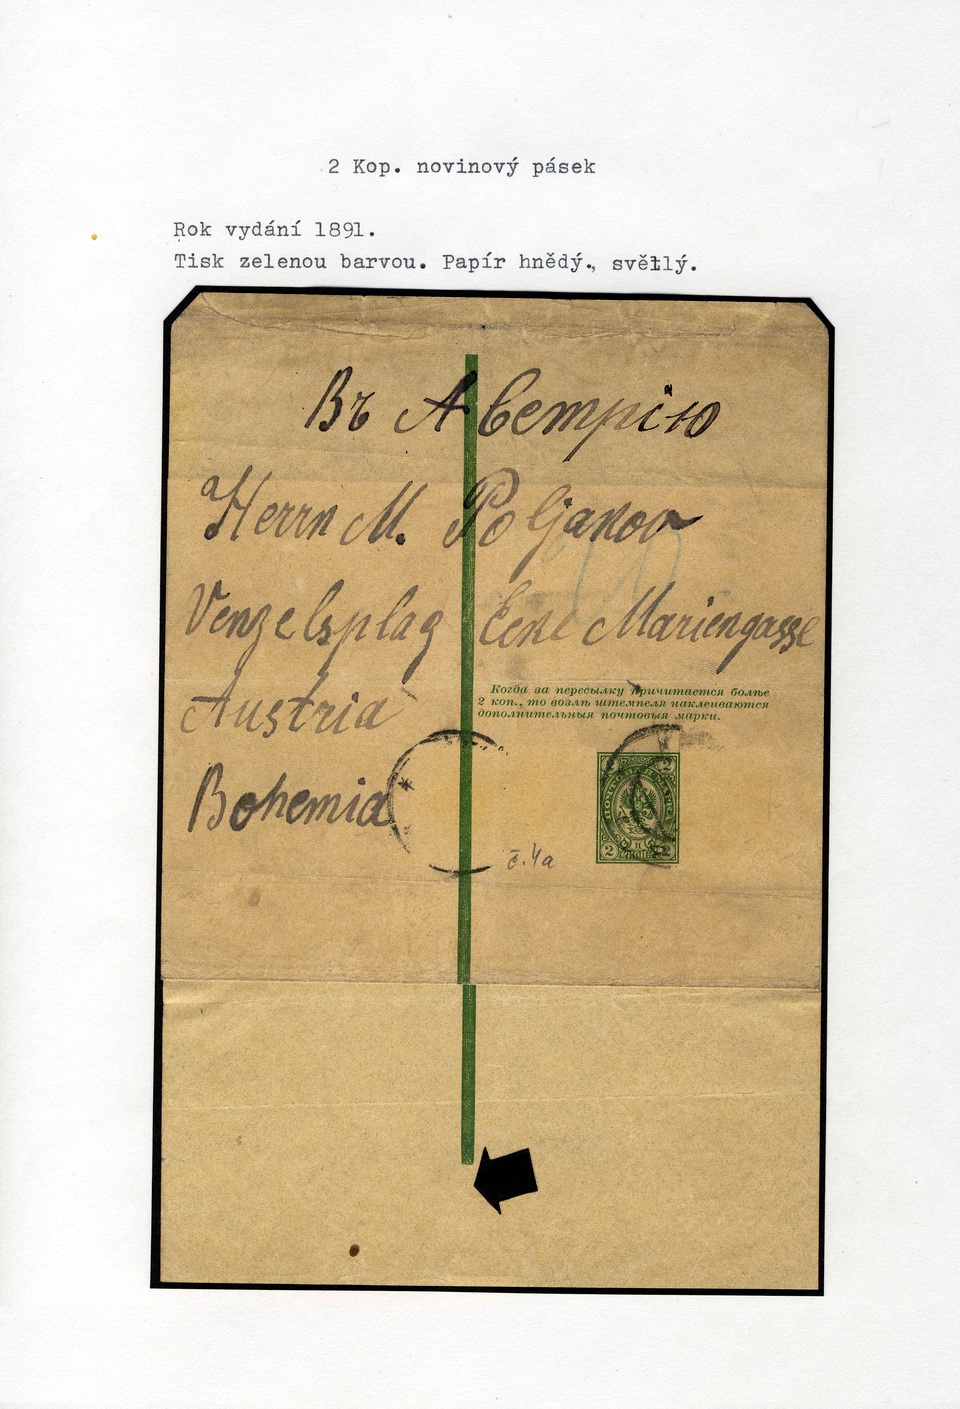 2 Kop. novinový pásek
Rok vydání 1891.
Tisk zelenou barvou. Papír hnědý., světlý.
Въ Австрію
Herrn M. Poljakov
Venzelsplaz Ecke Mariengasse
Austria
Когда за пересылку причитается болѣе
2 коп., то возлѣ штемпеля наклеиваются
дополнительныя почтовыя марки.
Bohemia
č.4a
2 2
ПОЧТОВАЯ МАРКА
2 2